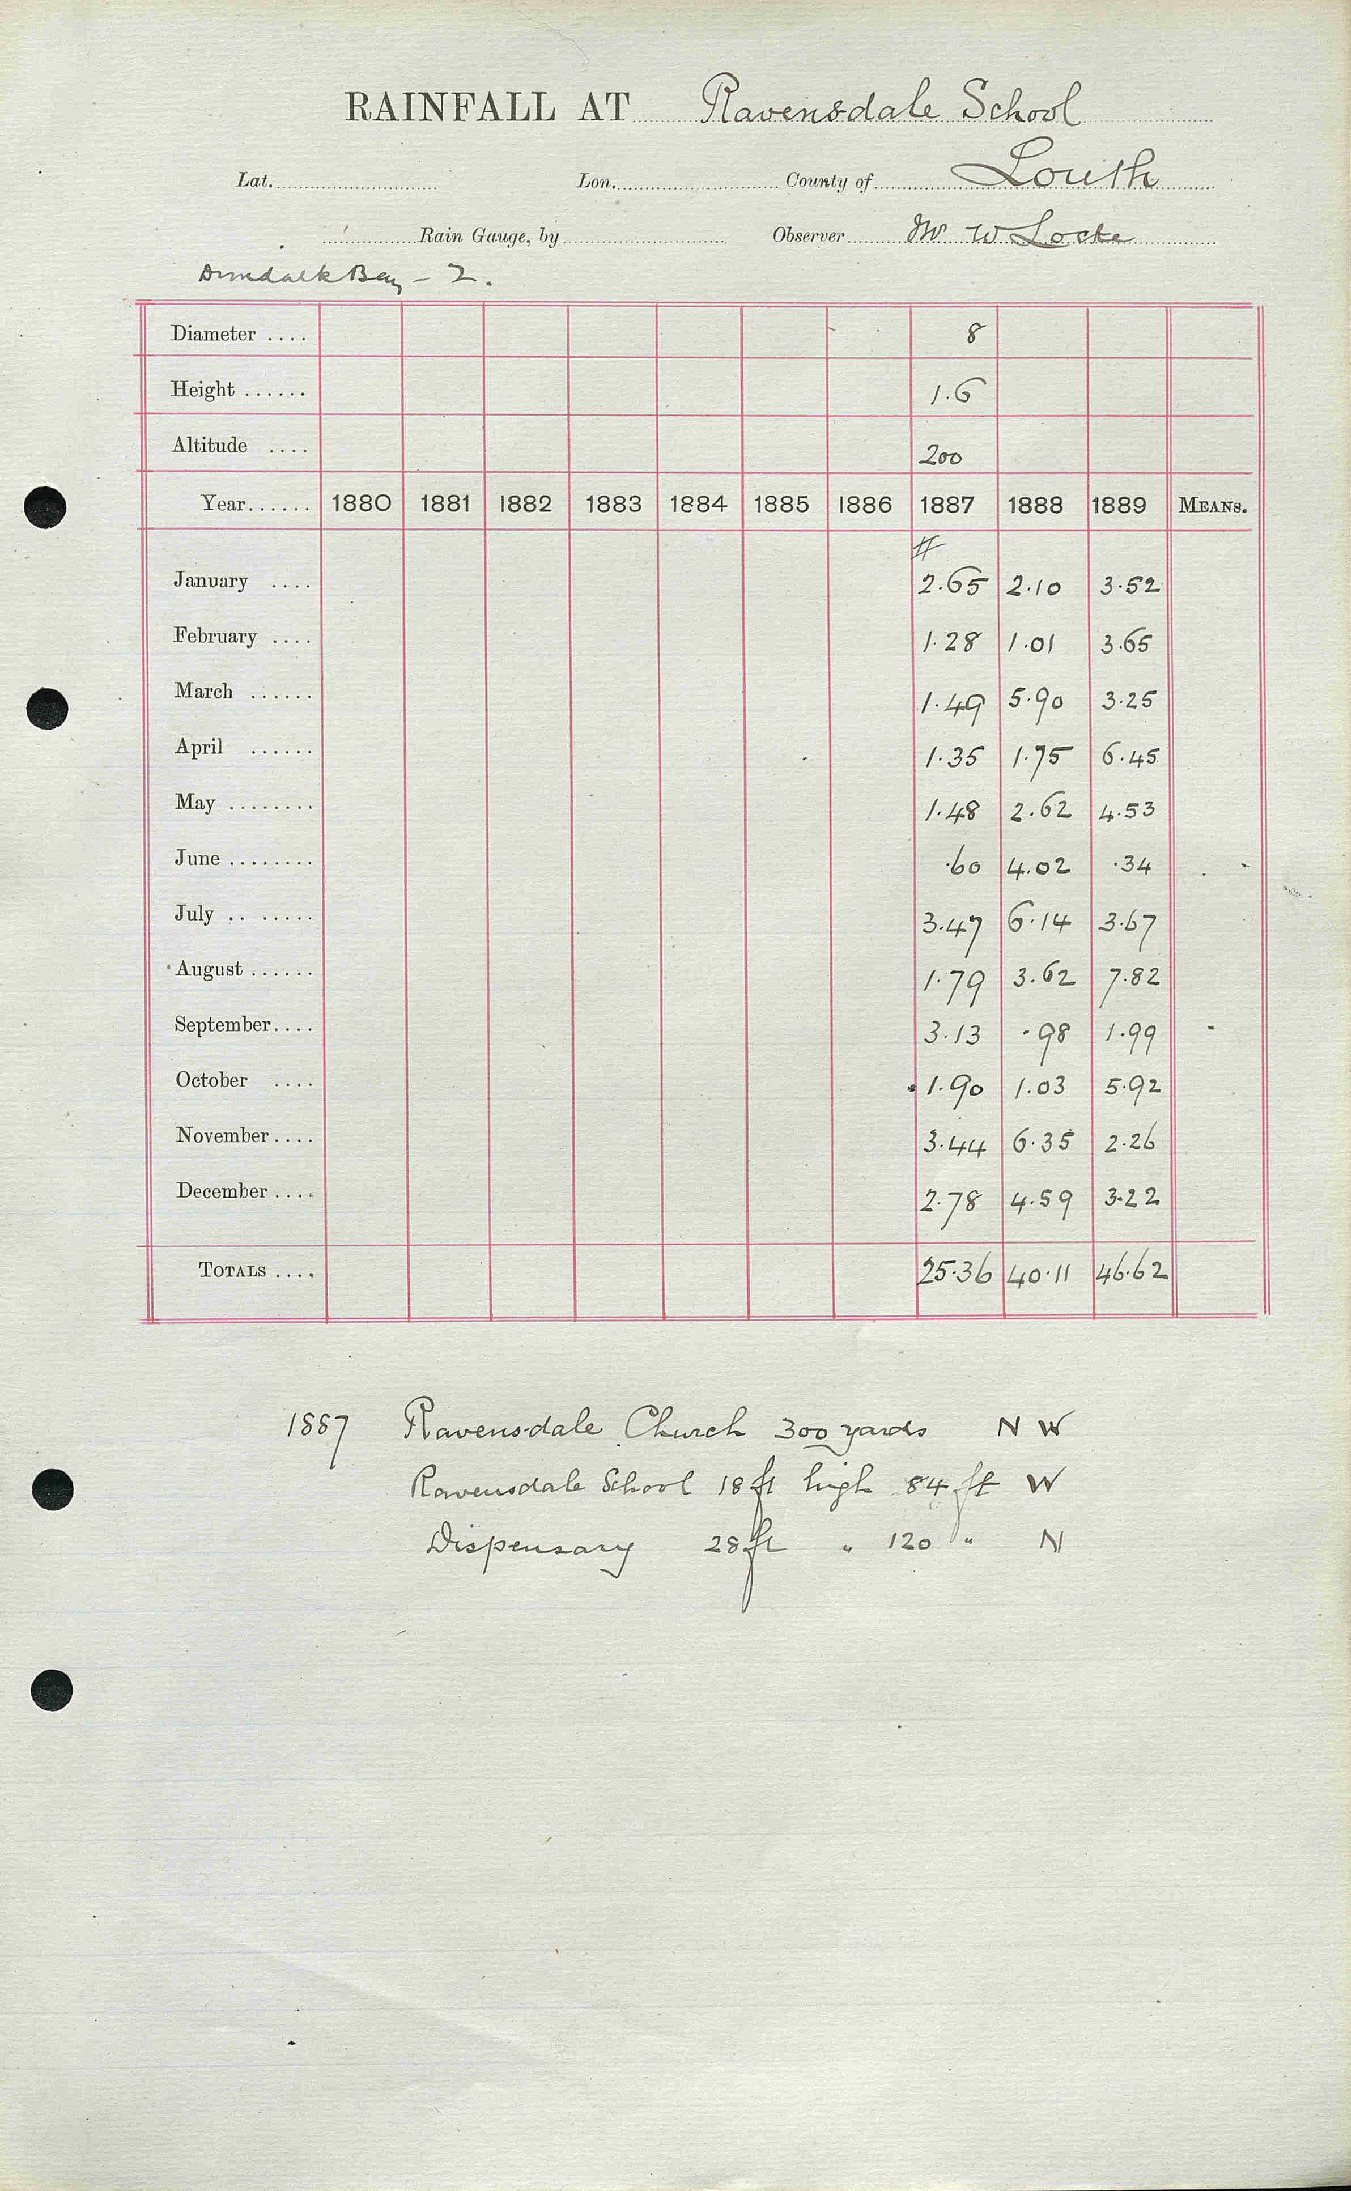 RAINFALL AT Ravensdale School
Lat. Lon. County of Louth
Rain Gauge, by Observer Mr W Locke
Dundalk Bay - 2.
Diameter .... 8
Height ...... 1.6
Altitude .... 200
Year...... 1880 1881 1882 1883 1884 1885 1886 1887 1888 1889 MEANS.
#
January .... 2.65 2.10 3.52
February .... 1.28 1.01 3.65
March ...... 1.49 5.90 3.25
April ...... 1.35 1.75 6.45
May ........ 1.48 2.62 4.53
June ........ .60 4.02 .34
July .. ...... 3.47 6.14 3.67
August ...... 1.79 3.62 7.82
September.... 3.13 .98 1.99
October .... 1.90 1.03 5.92
November.... 3.44 6.35 2.26
December .... 2.78 4.59 3.22
TOTALS .... 25.36 40.11 46.62
1887 Ravensdale Church 300 yards N W
Ravensdale School 18 ft high 84 ft W
Dispensary 28 ft " 120 " N